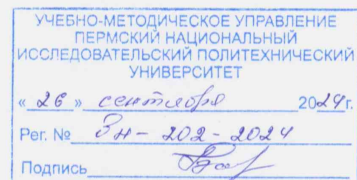 УЧЕБНО-МЕТОДИЧЕСКОЕ УПРАВЛЕНИЕ
ПЕРМСКИЙ НАЦИОНАЛЬНЫЙ
ИССЛЕДОВАТЕЛЬСКИЙ ПОЛИТЕХНИЧЕСКИЙ
УНИВЕРСИТЕТ
« 26 » сентября 2024г.
Рег. № Зн - 202 - 2024
Подпись